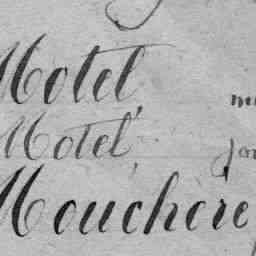 Motel,
Motel,
Mouchere